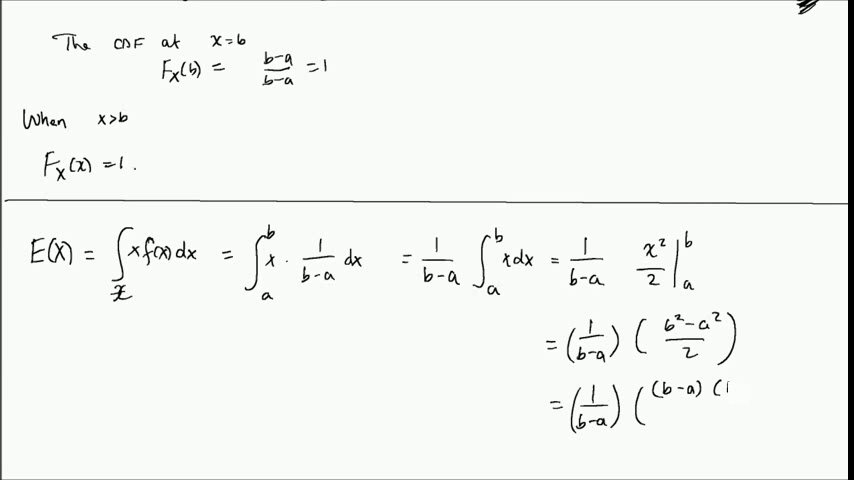 The CDF at x=b
F_X(b) = \frac{b-a}{b-a} = 1
When x>b
F_X(x) = 1.
E(X) = \int_{\mathcal{X}} x f(x) dx = \int_a^b x \cdot \frac{1}{b-a} dx = \frac{1}{b-a} \int_a^b x dx = \frac{1}{b-a} \frac{x^2}{2} |_a^b
= (\frac{1}{b-a}) (\frac{b^2-a^2}{2})
= (\frac{1}{b-a}) ( (b-a) (